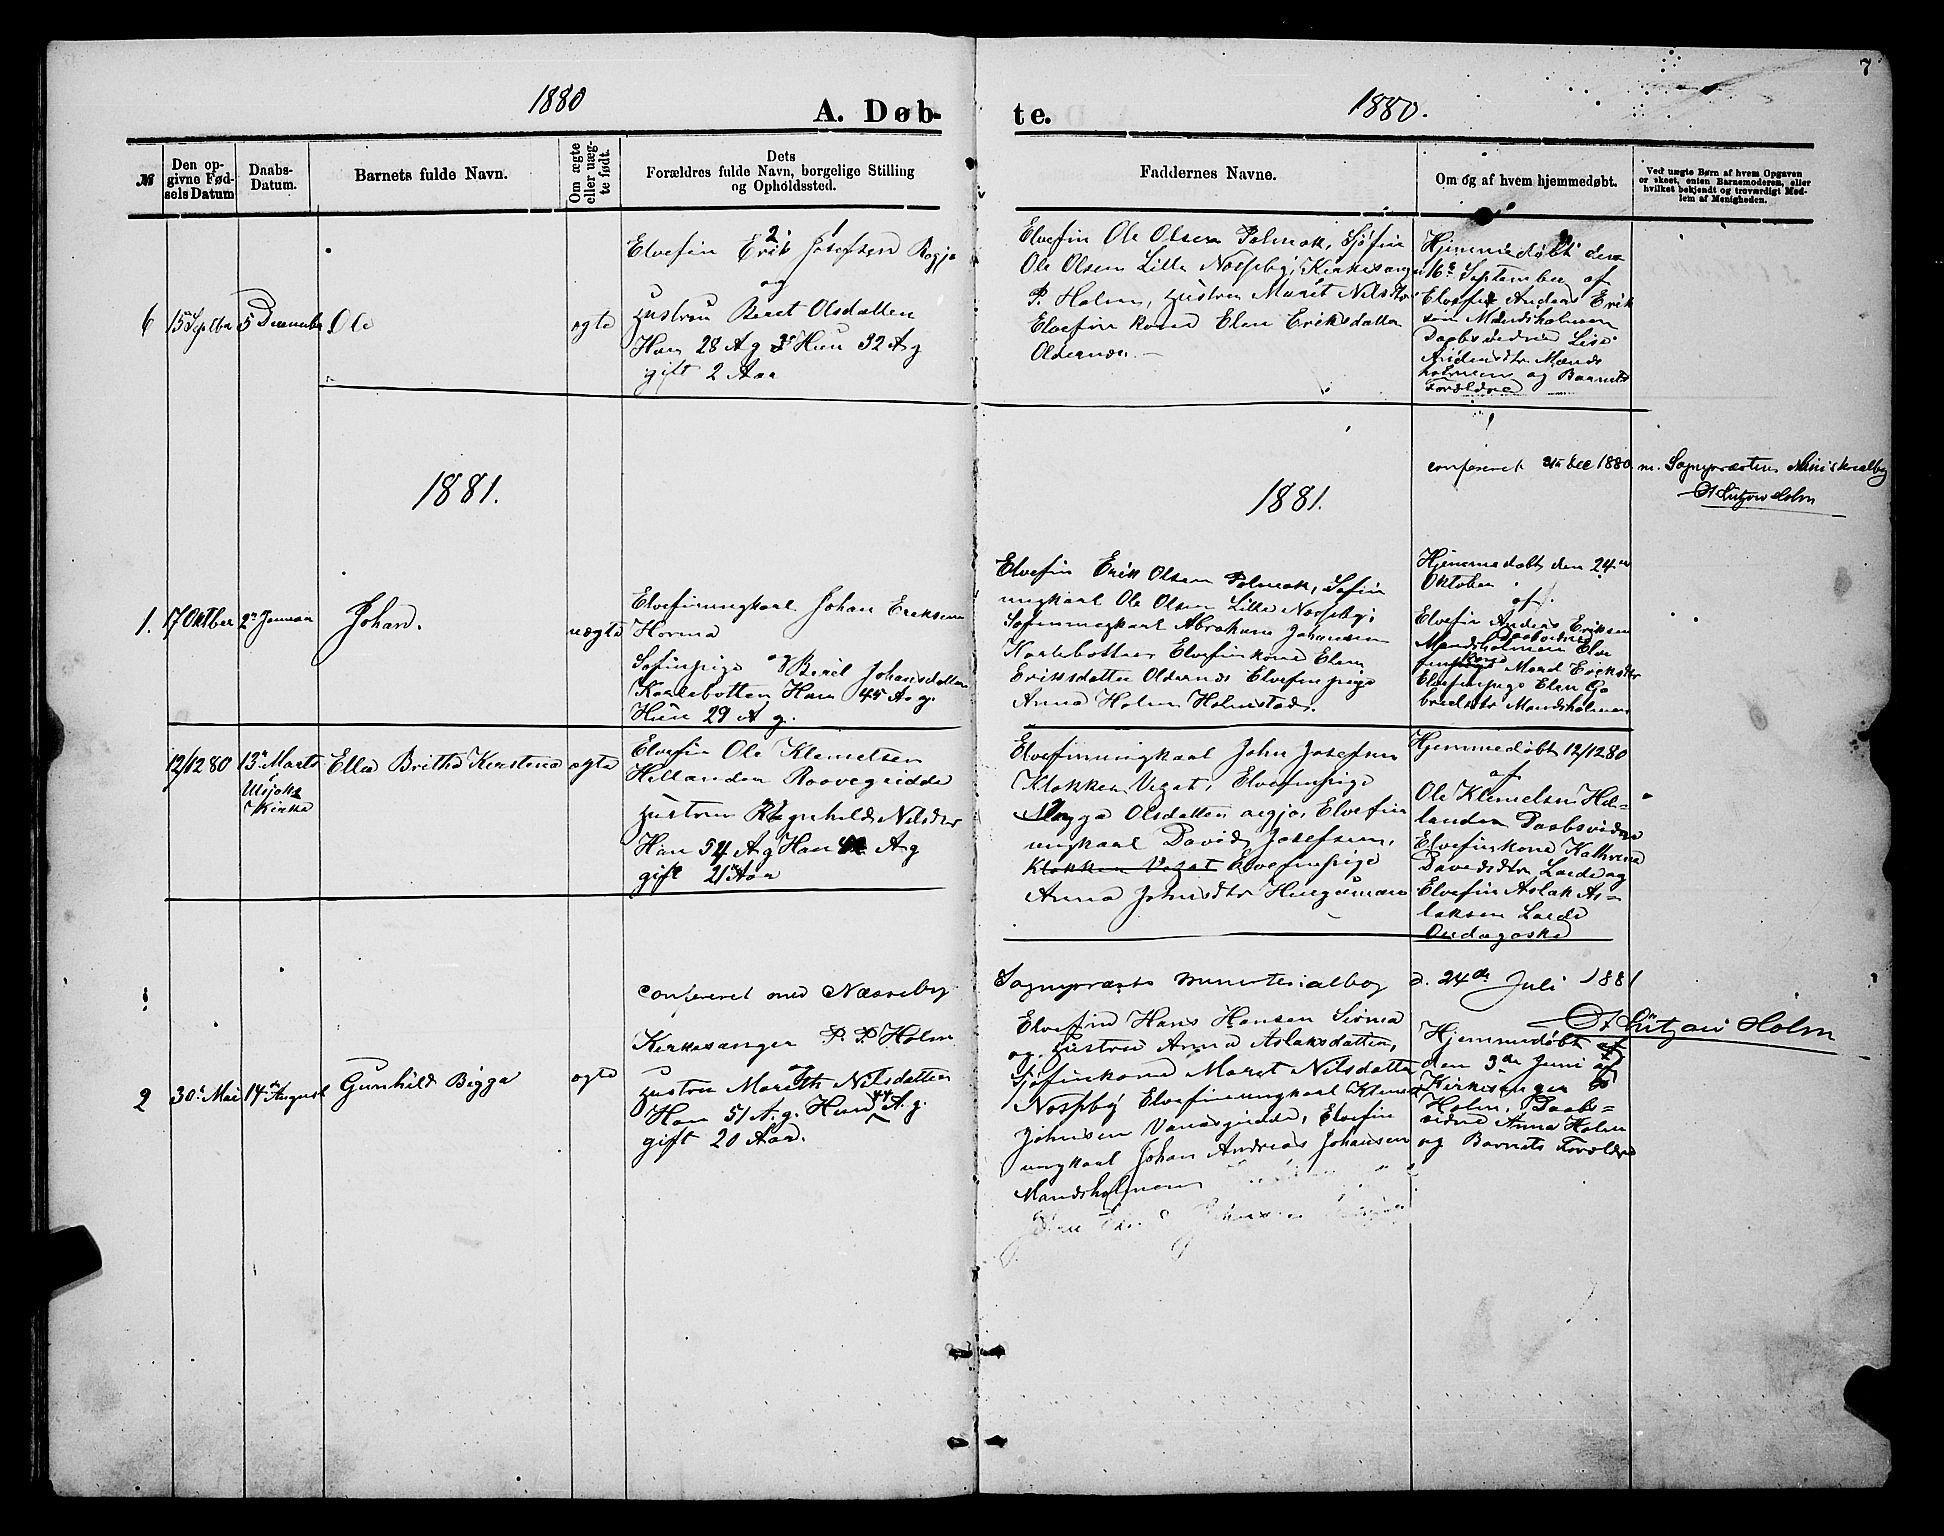 7
1880
A. Døb-
te.
1880.
№
Den op-
givne Fød-
sels Datum
Daabs-
Datum.
Barnets fulde Navn.
Om ægte
eller uæg-
te født.
Dets
Forældres fulde Navn, borgelige Stilling
og Opholdssted.
Faddernes Navne.
Om og af hvem hjemmedøbt.
Ved uægte Børn af hvem Opgaven
er skeet, enten Barnemoderen, eller
hvilket bekjendt og troværdigt Med-
lem af Menigheden.
6
15 Septbr
5 December
Ole
ægte
Elvefin Erik Josefsen
og
Hustru Beret Olsdatter
Han 28 A g Hun 32 A g
gift 2 Aar
Elvefin Ole Olsen Polmak, Sjøfin
Ole Olsen Lille Nossbÿ, Kirkesanger
P. Holm, Hustru Marit Nilsdtr
Elvefin kone Elen Eriksdatter
Oldernes.
Hjemmedøbt den
16 September af
Elvefin Anders Erik
sen Mandsholmen
Daabsvidne
Mands
holmen og Barnets
Forældre
conferert 31 Dec 1880 m. Sognepræstens Ministerialbog
Lützow Holm
1881.
1881.
1.
17 Oktber
2n Januar
Johan.
uægte
Elvefinungkarl Johan Eriksen
Horma
Søfinpige og Berit Johansdatter
Karlebotten Han 45 A g.
Hun 29 A g.
Elvefin Erik Olsen Polmak, Søfin
ungkarl Ole Olsen Lille Nossbÿ,
Søfinungkarl Abraham Johansen
Karlebotten Elvefinkone Elen
Eriksdatter Oldernes Elvefinpige
Anna Holm Holmstad.
Hjemmedøbt den 24.
Oktober
af
Elvefin Anders Eriksen
Daabsvidne
Mandsholmen Elve
fin kone Mard Eriksdtr
Elvefinpige Elen Ga
brielsdtr Mandsholmen
12/12 80
13 Marts
Utsjoks
Kirke
Ellen Britha Kirstina
ægte
Elvefin Ole Klemetsen
Hillanden Roavegiedde
Hustru Ragnhild Nilsdtr
Han 54 A g Hun A g
gift 21 Aar
Elvefinungkarl John Josefsen
Klokken Vegat, Elvefinpige
Magga Olsdatter Elvefin
ungkarl David Josefsen,
Klokken Vegat Elvefinpige
Anna Johnsdtr
Hjemmedøbt 12/12 80
af
Ole Klemetsen Hil-
landen Daabsvidne
Elvefinkone Kathrina
Davidsdtr Laide og
Elvefin Aslak As-
laksen Laide
conferert med Næsseby
Sognepræsts ministerialbog d. 24de Juli 1881
Lützow Holm
2
30 Mai
14 August
Gunhild Bigga
ægte
Kirkesanger P. P. Holm
og
Hustru Mareth Nilsdatter
Han 51 A. g. Hun 44 A. g.
gift 20 Aar.
Elvefin Hans Hansen Sirma
og Hustru Anna Aslaksdatter,
Sjøfinkone Maret Nilsdatter
Nossbÿ Elvefinungkarl Klemet
Johnsen Vanasgiedde, Elvefin
ungkarl Johan Andreas Johansen
Mandsholmen
Hjemmedøbt
den 3de Juni af
Kirkesanger
Holm, Daabs-
vidne Anna Holm
og Barnets Forældre